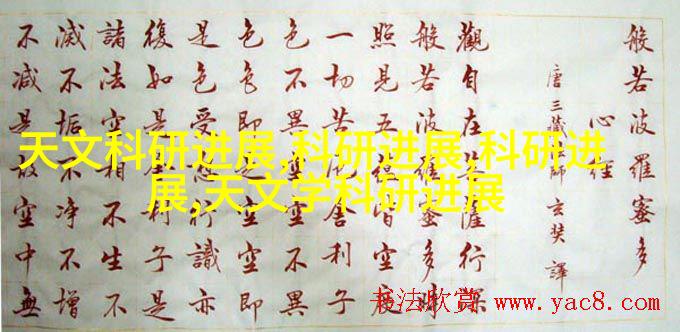 天文科研进展,科研进展,科研进
展,天文学科研进展
般若波羅蜜多
心經
唐三藏法師玄奘譯
觀自在菩薩行深
般若波羅蜜多時
照見五蘊皆空度
一切苦厄舍利子
色不異空空不異
色色即是空空即
是色受想行識亦
復如是舍利子是
諸法空相不生不
滅不垢不淨不增
不減是故空中無
书法欣赏 www.yac8.com